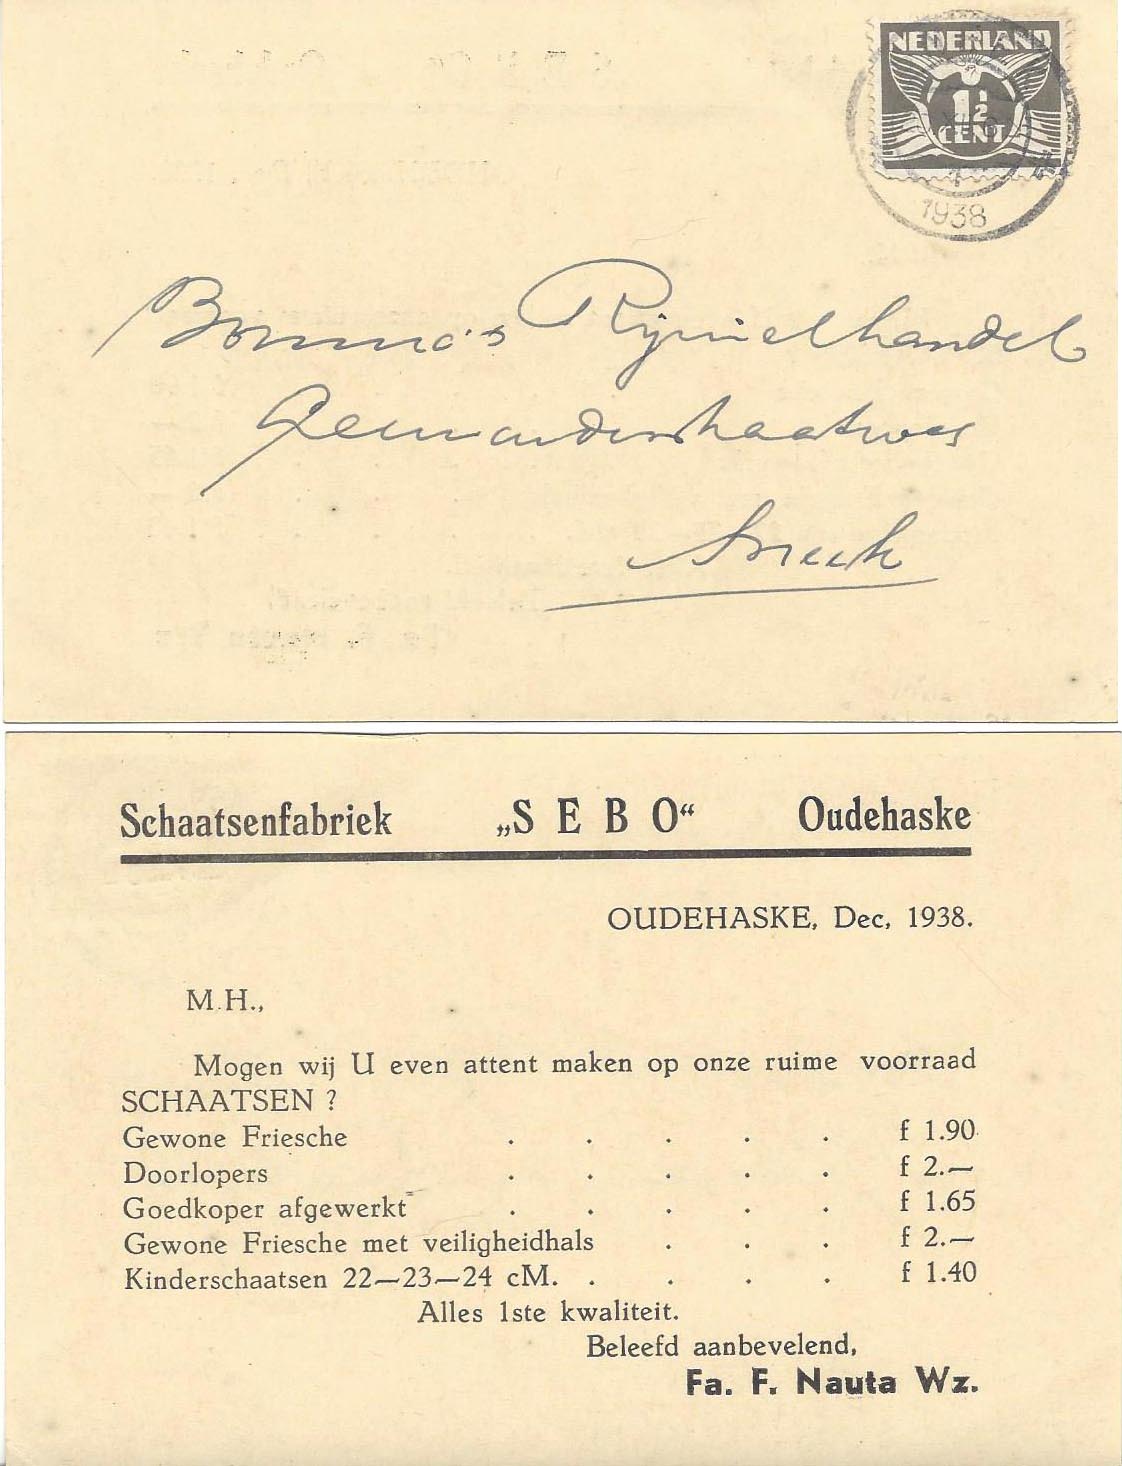 NEDERLAND
1½
CENT
1938
Bouma's Rijwielhandel
Sneek
Schaatsenfabriek „SEBO“ Oudehaske
OUDEHASKE, Dec, 1938.
M.H.,
Mogen wij U even attent maken op onze ruime voorraad
SCHAATSEN ?
Gewone Friesche . . . . . f 1.90
Doorlopers . . . . . f 2.—
Goedkoper afgewerkt . . . . . f 1.65
Gewone Friesche met veiligheidhals . . . f 2.—
Kinderschaatsen 22—23—24 cM. . . . . f 1.40
Alles 1ste kwaliteit.
Beleefd aanbevelend,
Fa. F. Nauta Wz.